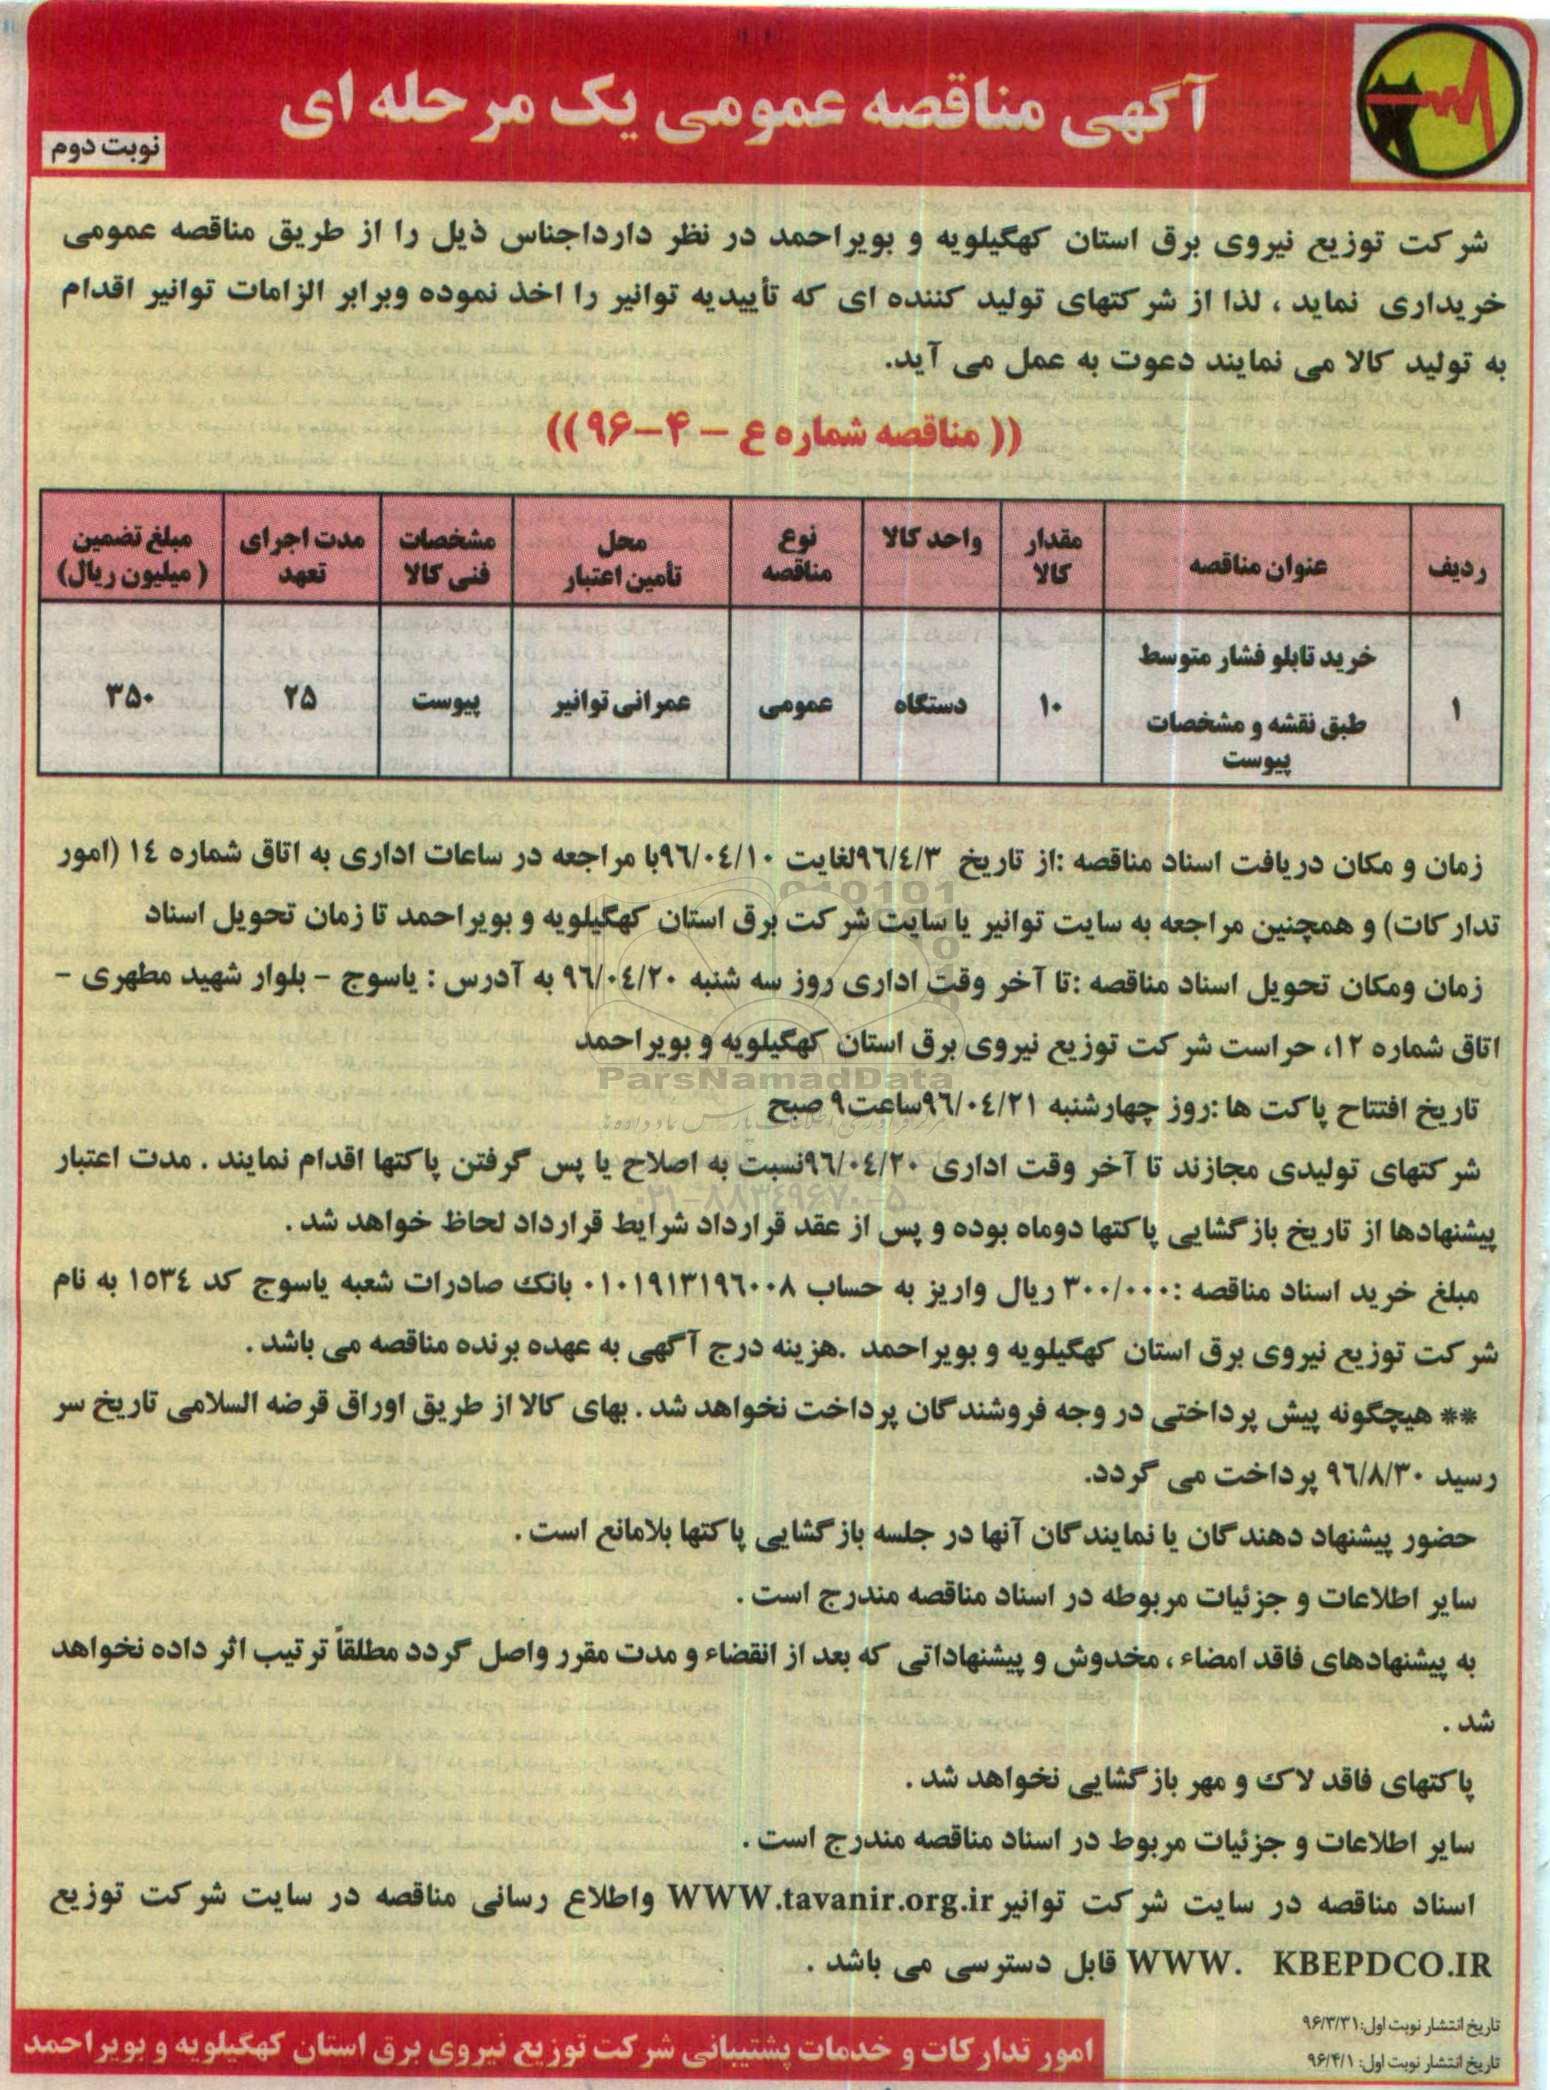 آگهی مناقصه عمومی یک مرحله ای
نوبت دوم
شرکت توزیع نیروی برق استان کهگیلویه و بویراحمد در نظر دارداجناس ذیل را از طریق مناقصه عمومی
خریداری نماید ، لذا از شرکتهای تولید کننده ای که تأییدیه توانیر را اخذ نموده وبرابر الزامات توانیر اقدام
به تولید کالا می نمایند دعوت به عمل می آید.
(( مناقصه شماره ع – ۴–۹۶))
ردیف | عنوان مناقصه | مقدار کالا | واحد کالا | نوع مناقصه | محل تأمین اعتبار | مشخصات فنی کالا | مدت اجرای تعهد | مبلغ تضمین ( میلیون ریال)
۱ | خرید تابلو فشار متوسط طبق نقشه و مشخصات پیوست | ۱۰ | دستگاه | عمومی | عمرانی توانیر | پیوست | ۲۵ | ۳۵۰
زمان و مکان دریافت اسناد مناقصه :از تاریخ ۹٦/٤/۳لغایت ۹٦/۰٤/۱۰با مراجعه در ساعات اداری به اتاق شماره ١٤ (امور
تدارکات) و همچنین مراجعه به سایت توانیر یا سایت شرکت برق استان کهگیلویه و بویراحمد تا زمان تحویل اسناد
زمان ومکان تحویل اسناد مناقصه :تا آخر وقت اداری روز سه شنبه ۹٦/۰٤/۲۰ به آدرس : یاسوج – بلوار شهید مطهری –
اتاق شماره ۱۲، حراست شرکت توزیع نیروی برق استان کهگیلویه و بویراحمد
تاریخ افتتاح پاکت ها :روز چهارشنبه ۹٦/۰٤/۲۱ساعت۹ صبح
شرکتهای تولیدی مجازند تا آخر وقت اداری ۹٦/۰٤/۲۰نسبت به اصلاح یا پس گرفتن پاکتها اقدام نمایند . مدت اعتبار
پیشنهادها از تاریخ بازگشایی پاکتها دوماه بوده و پس از عقد قرارداد شرایط قرارداد لحاظ خواهد شد .
مبلغ خرید اسناد مناقصه :۳۰۰/۰۰۰ ریال واریز به حساب ۰۱۰۱۹۱۳۱۹٦۰۰۸ بانک صادرات شعبه یاسوج کد ۱۵۳٤ به نام
شرکت توزیع نیروی برق استان کهگیلویه و بویراحمد .هزینه درج آگهی به عهده برنده مناقصه می باشد .
** هیچگونه پیش پرداختی در وجه فروشندگان پرداخت نخواهد شد . بهای کالا از طریق اوراق قرضه السلامی تاریخ سر
رسید ۹٦/۸/۳۰ پرداخت می گردد.
حضور پیشنهاد دهندگان یا نمایندگان آنها در جلسه بازگشایی پاکتها بلامانع است .
سایر اطلاعات و جزئیات مربوطه در اسناد مناقصه مندرج است .
به پیشنهادهای فاقد امضاء ، مخدوش و پیشنهاداتی که بعد از انقضاء و مدت مقرر واصل گردد مطلقاً ترتیب اثر داده نخواهد
شد .
پاکتهای فاقد لاک و مهر بازگشایی نخواهد شد .
سایر اطلاعات و جزئیات مربوط در اسناد مناقصه مندرج است .
اسناد مناقصه در سایت شرکت توانیر WWW.tavanir.org.ir واطلاع رسانی مناقصه در سایت شرکت توزیع
WWW. KBEPDCO.IR قابل دسترسی می باشد .
تاریخ انتشار نوبت اول: ۹۶/۳/۳۱
تاریخ انتشار نوبت اول: ۹۶/۴/۱
امور تدارکات و خدمات پشتیبانی شرکت توزیع نیروی برق استان کهگیلویه و بویراحمد
ParsNamadData
۰۲۱-۸۸۳٤۹٦۷۰-۵